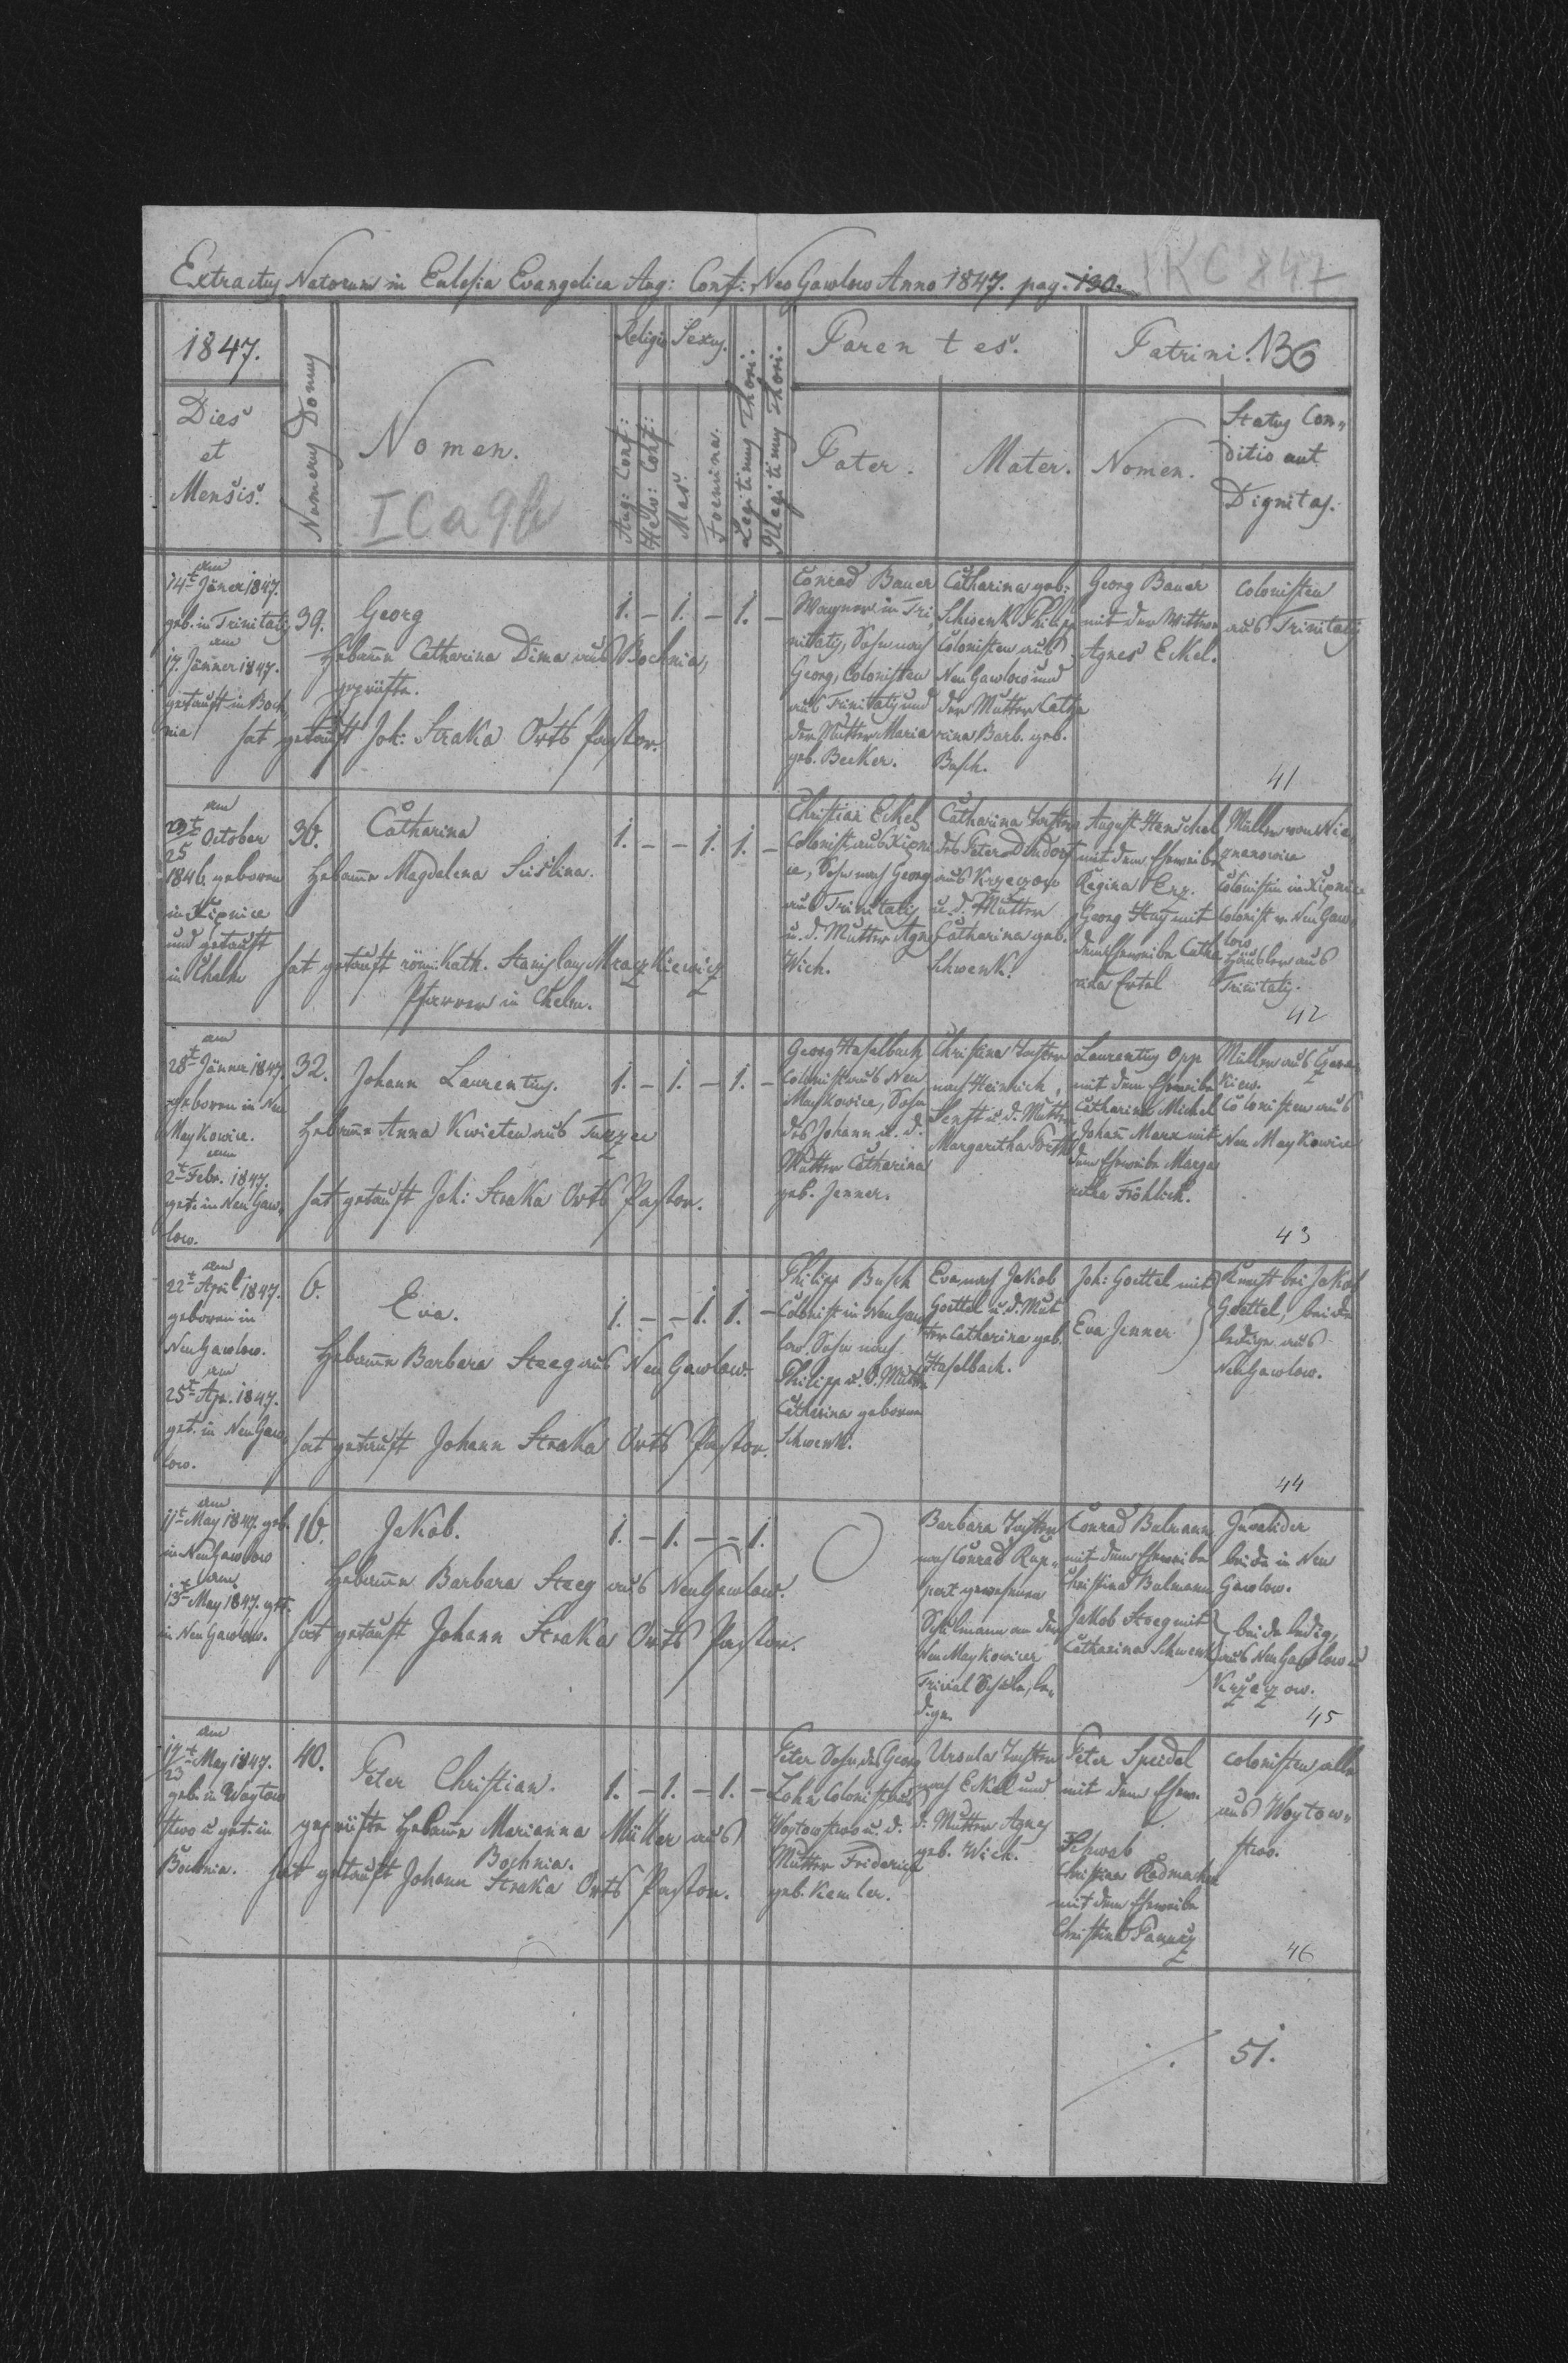 Extractus Natorum in Eclesia Evangelica Aug: Conf: Neo Gawlow Anno 1847. pag. 130.
IKC 847
1847.
Dies
et
Mensis.
Numerus Domus
Nomen.
ICa9b
Religio
Sexus.
Aug: Conf:
Helv: Conf:
Mas.
Foemina.
Legitimus Thori.
Illegitimus Thori.
Parentes.
Pater.
Mater.
Patrini. 136
Nomen.
Status Con„
ditio aut
Dignitas.
am
14t Jäner 1847.
geb. in Trinitatis
am
17. Jänner 1847.
getauft in Boch
nia
39.
Georg
Hebamme Catharina Dima aus Bochnia,
geprüfte.
hat getauft Joh: Straka Orts Pastor.
1. – 1. – 1. –
Conrad Bauer
Wagner in Tri
nitatis, Sohn nach
Georg, Colonisten
aus Trinitatis und
der Mutter Maria
geb. Becker.
Catharina geb:
Schwenk Philipp
Colonisten aus
Neu Gawlow und
der Mutter Catha
rina Barb. geb.
Busch.
Georg Bauer
mit der Wittwe
Agnes Eckel.
Colonisten
aus Trinitatis
41
am
October
25
1846 geboren
in Xipnice
und getauft
in Chelm
30.
Catharina
Hebamme Magdalena Suslina.
hat getauft röm: Kath. Stanislaus Mraczkiewicz
Pfarrer in Chelm.
1. – – 1. 1. –
Christian Eckel
Colonist aus Xipni
ce, Sohn nach Georg
aus Trinitatis
u. d. Mutter Agnes
Wich.
Catharina Tochter
des Peter Dindorf
aus Krzeczow
u. d. Mutter
Catharina geb.
Schwenk.
August Henschel
mit dem Eheweibe
Regina
Georg Hay mit
dem Eheweibe Catha
rina Ertel
Müller von Nie
gnanowice
Colonisten in Xipnice
Colonist v. Neu Gaw„
low
Häusler aus
Trinitatis.
42
am
28t Jänner 1847.
geboren in Neu
Maykowice.
am
2t Febr. 1847.
get. in Neu Gaw„
low.
32.
Johann Laurentius.
Hebamme Anna Kwieten aus
hat getauft Joh: Straka Orts Pastor.
1. – 1. – 1. –
Georg Haselbach
Colonist aus Neu
Maykowice, Sohn
des Johann u. d.
Mutter Catharina
geb. Jenner.
Christina Tochter
nach Heinrich
Senft u. d. Mutter
Margaretha
Laurentius Opp
mit dem Eheweibe
Catharina Michel
Johann Marx mit
dem Eheweibe Marga
retha Fröhlich.
Müller aus
kiew.
Colonisten aus
Neu Maykowice
43
am
22t April 1847.
geboren in
Neu Gawlow.
am
25t Apr. 1847.
get. in Neu Gaw„
low.
6.
Eva.
Hebamme Barbara Steeg aus Neu Gawlow.
hat getauft Johann Straka Orts Pastor.
1. – – 1. 1. –
Philipp Busch
Colonist in Neu Gaw
low. Sohn nach
Philipp u. d. Mutter
Catharina geboren
Schwenk.
Eva, nach Jakob
Goettel u. d. Mut
ter Catharina geb.
Haselbach.
Joh: Goettel mit
Eva Jenner
Knecht bei Jakob
Goettel, beide
ledige aus
Neu Gawlow.
44
am
11t May 1847. geb.
in Neu Gawlow
am
13t May 1847. get.
in Neu Gawlow.
10.
Jakob.
Hebamme Barbara Steeg aus Neu Gawlow.
hat getauft Johann Straka Orts Pastor.
1. – 1. – – 1.
Barbara Tochter
nach Conrad Rup„
pert gewesenen
Schulmann an der
Neu Maykowicer
Trivial Schule, le„
dige.
Conrad Bulmann
mit dem Eheweibe
Christina Bulmann
Jakob Steeg mit
Catharina Schwenk
Invalider
beide in Neu
Gawlow.
beide ledig,
aus Neu Gawlow u
Krzeczow.
45
am
May 1847.
23
geb. in Woytow
stwo u get. in
Bochnia.
40.
Peter Christian.
geprüfte Hebamme Marianna Müller aus
Bochnia.
hat getauft Johann Straka Orts Pastor.
1. – 1. – 1. –
Peter Sohn des Georg
Zohn Colonist aus
Woytowstwo u. d.
Mutter Friderica
geb. Kemler.
Ursula Tochter
nach Eckel und
d. Mutter Agnes
geb. Wich.
Peter Speidel
mit dem Ehew.
Schwab
Christian Radmacher
mit dem Eheweibe
Christina
Colonisten alle
aus Woytow„
stwo.
46
51.